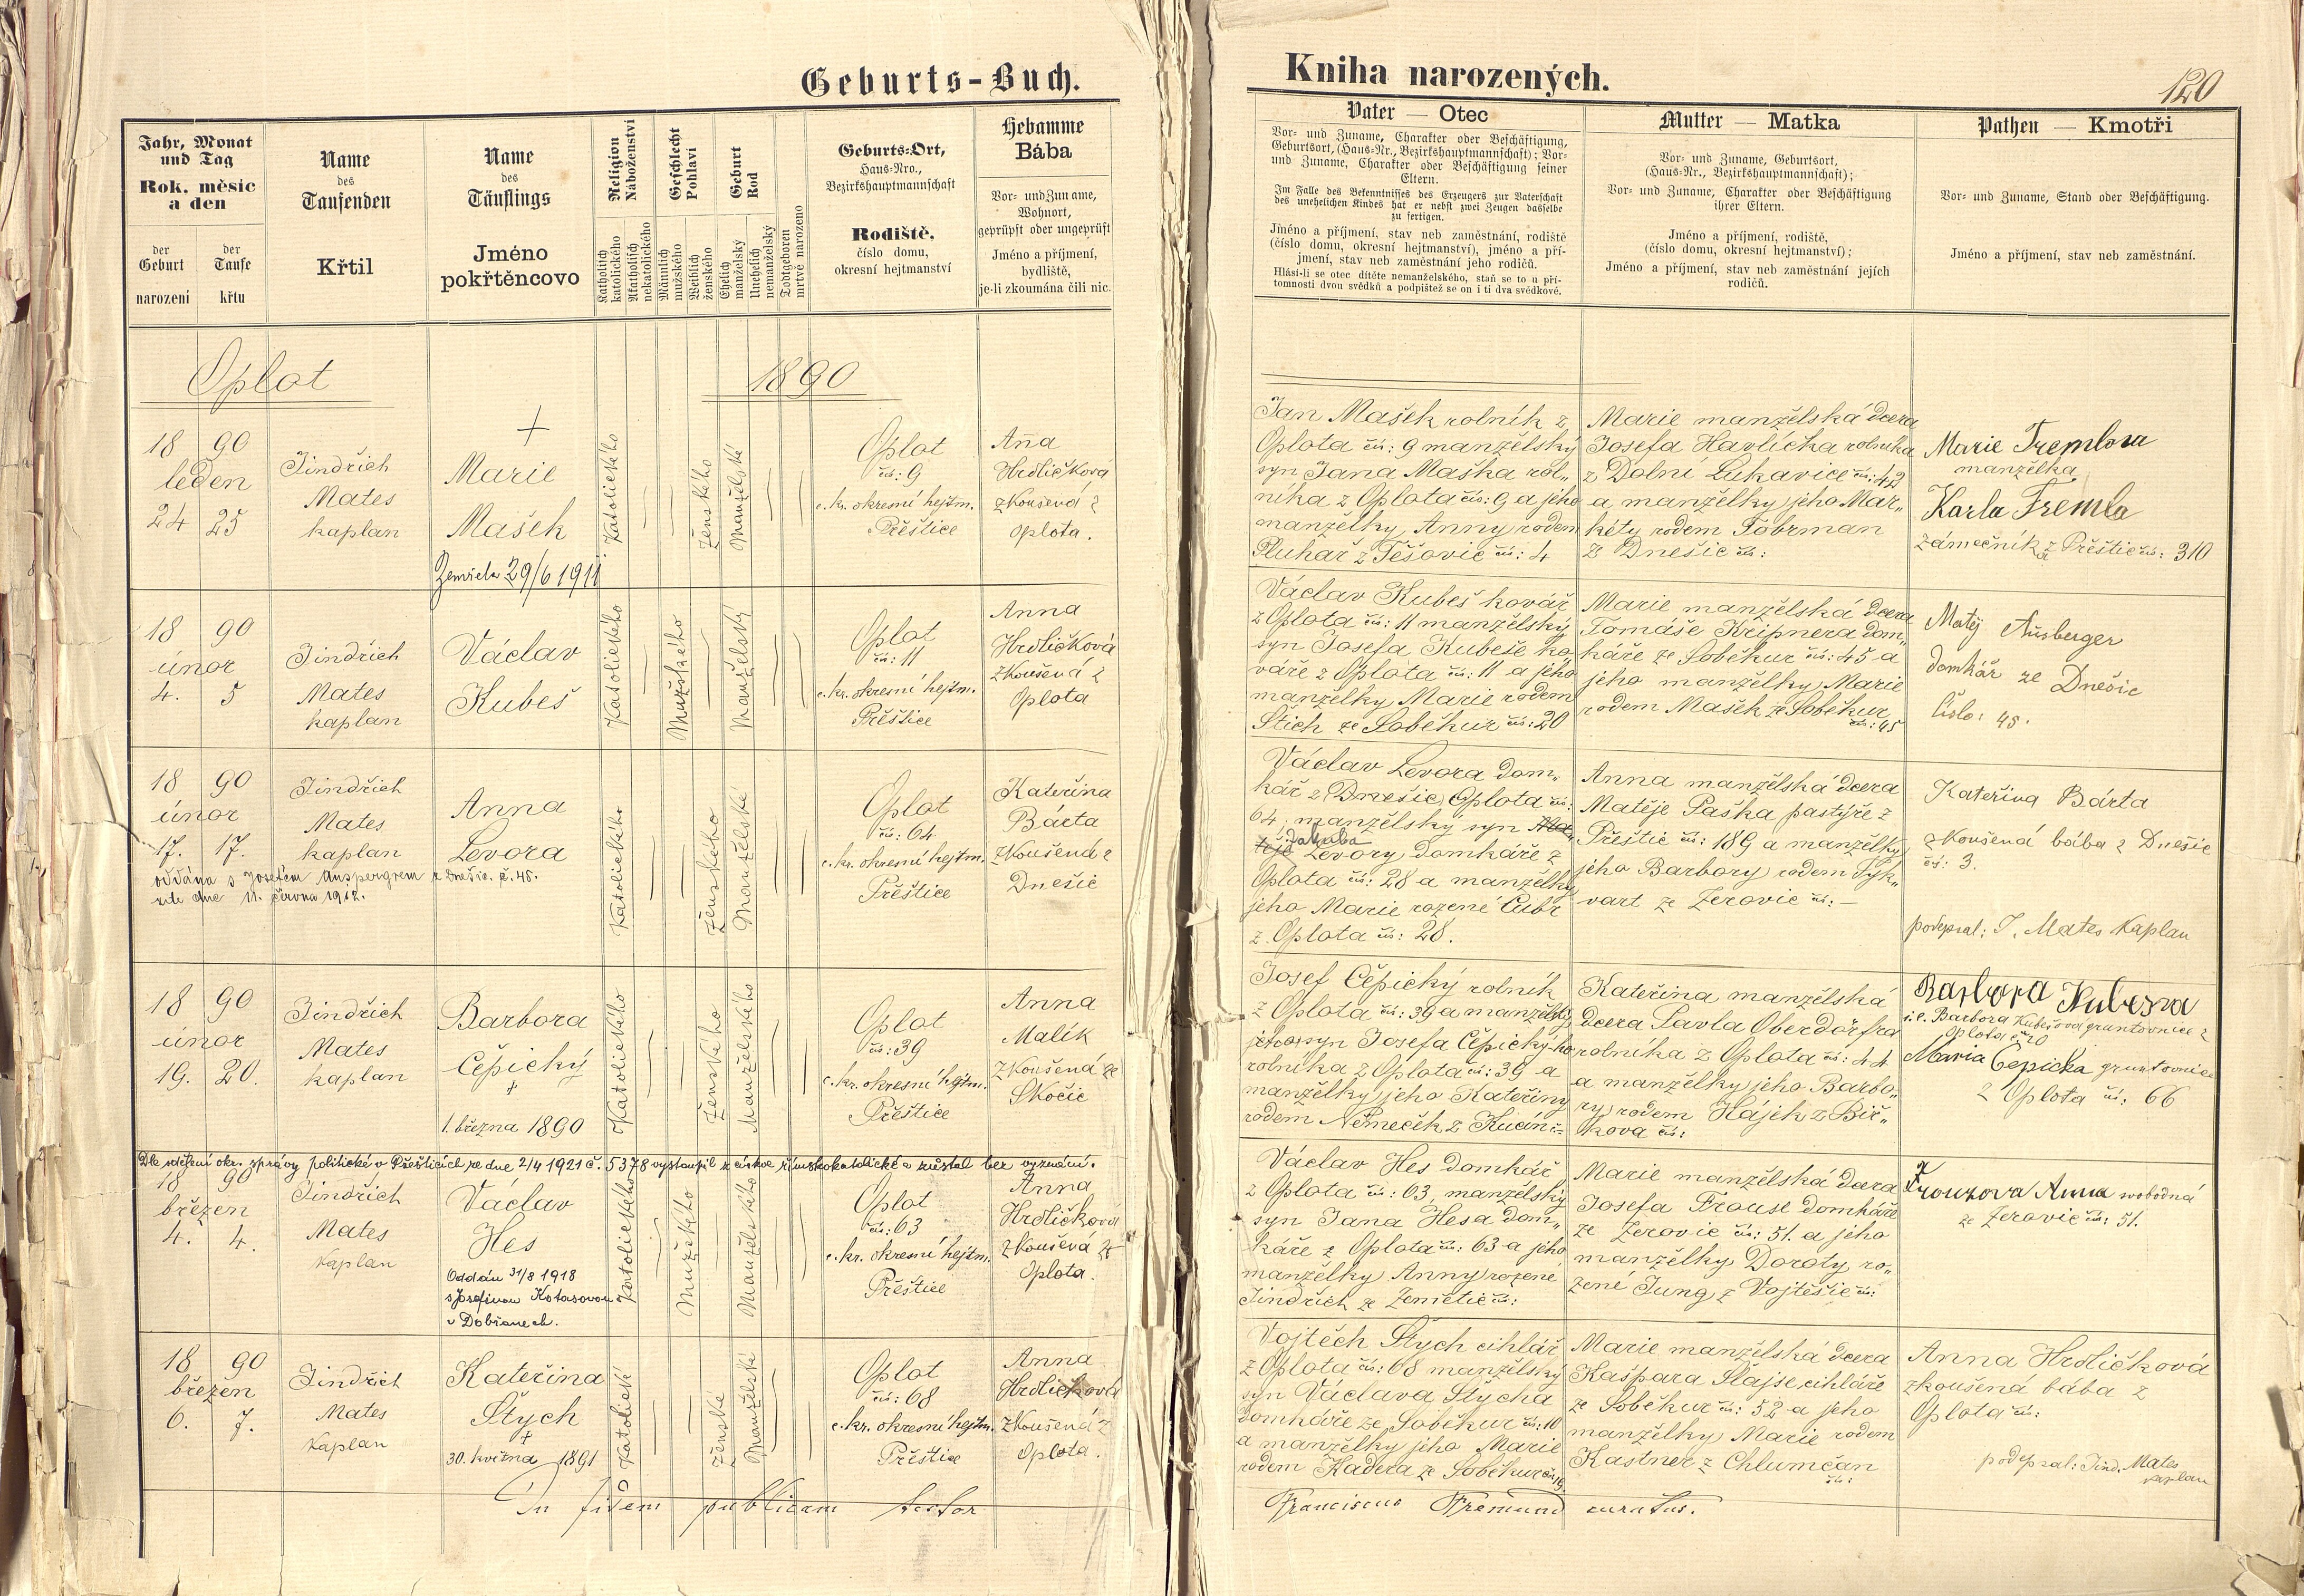 Geburts-Buch.
Jahr, Monat
und Tag
Rok. měsíc
a den
der
Geburt
narození
der
Taufe
křtu
Name
des
Taufenden
Křtil
Name
des
Täuflings
Jméno
pokřtěncovo
Religion
Náboženství
Katholisch
katolického
Akatholisch
nekatolického
Geschlecht
Pohlaví
Männlich
mužského
Weiblich
ženského
Geburt
Rod
Ehelich
manželský
Unehelich
nemanželský
Todtgeboren
mrtvě narozeno
Geburts-Ort,
Haus-Nro.,
Bezirkshauptmannschaft
Rodiště,
číslo domu,
okresní hejtmanství
Hebamme
Bába
Vor- und Zuname,
Wohnort,
geprüpft oder ungeprüft
Jméno a příjmení,
bydliště,
je-li zkoumána čili nic.
Oplot
1890
18 90
leden
24 25
Jindřich
Mates
kaplan
+
Marie
Mašek
Zemřela 29/6 1911
Katolického
ženského
Manželské
Oplot
čís: 9
c. kr. okresní hejtm.
Přeštice
Aňa
Hrdličková
zkoušená z
Oplota.
18 90
únor
4. 5
Jindřich
Mates
kaplan
Václav
Kubeš
Katolického
Mužského
Manželský
Oplot
čís: 11
c. kr. okresní hejtm.
Přeštice
Anna
Hrdličková
zkoušená z
Oplota
18 90
únor
17. 17.
Jindřich
Mates
kaplan
Anna
Levora
oddána s Josefem Auspergrem z Dnešic. č. 45.
zde dne 11. června 1912.
Katolického
Ženského
Manželské
Oplot
čís: 64
c. kr. okresní hejtm.
Přeštice
Kateřina
Bárta
zkoušená z
Dnešic
18 90
únor
19. 20.
Jindřich
Mates
kaplan
Barbora
Čepický
+
1. března 1890
Katolického
Ženského
Manželského
Oplot
čís: 39
c. kr. okresní hejtm.
Přeštice
Anna
Malík
zkoušená ze
Skočic
Dle sdělení okr. správy politické v Přešticích ze dne 2/4 1921 č. 5378 vystoupil z církve římskokatolické a zůstal bez vyznání.
18 90
březen
4. 4.
Jindřich
Mates
kaplan
Václav
Hes
Oddán 31/8 1918
s Josefinou Kotasovou
v Dobřanech.
Katolického
Mužského
Manželského
Oplot
čís: 63
c. kr. okresní hejtm.
Přeštice
Anna
Hrdličková
zkoušená z
Oplota.
18 90
březen
6. 7.
Jindřich
Mates
kaplan
Kateřina
Štych
+
30. května 1891
Katolické
ženské
Manželské
Oplot
čís: 68
c. kr. okresní hejtm.
Přeštice
Anna
Hrdličková
zkoušená z
Oplota.
In fidem publicam testor
Kniha narozených.
120
Vater — Otec
Vor- und Zuname, Charakter oder Beschäftigung,
Geburtsort, (Haus-Nr., Bezirkshauptmannschaft); Vor-
und Zuname, Charakter oder Beschäftigung seiner
Eltern.
Im Falle des Bekenntnisses des Erzeugers zur Vaterschaft
des unehelichen Kindes hat er nebst zwei Zeugen dasselbe
zu fertigen.
Jméno a příjmení, stav neb zaměstnání, rodiště
(číslo domu, okresní hejtmanství), jméno a pří-
jmení, stav neb zaměstnání jeho rodičů.
Hlásí-li se otec dítěte nemanželského, staň se to u pří-
tomnosti dvou svědků a podpištež se on i ti dva svědkové.
Mutter — Matka
Vor- und Zuname, Geburtsort,
(Haus-Nr., Bezirkshauptmannschaft);
Vor- und Zuname, Charakter oder Beschäftigung
ihrer Eltern.
Jméno a příjmení, rodiště,
(číslo domu, okresní hejtmanství);
Jméno a příjmení, stav neb zaměstnání jejích
rodičů.
Pathen — Kmotři
Vor- und Zuname, Stand oder Beschäftigung.
Jméno a příjmení, stav neb zaměstnání.
Jan Mašek rolník z
Oplota čís: 9 manželský
syn Jana Maška rol„
níka z Oplota čís: 9 a jeho
manželky Anny rodem
Pluhař z Těšovic čís: 4
Marie manželská dcera
Josefa Havlíčka rolníka
z Dolní Lukavice čís: 42
a manželky jeho Mar„
kéty rodem Fobrman
z Dnešic čís:
Marie Tremlova
manželka
Karla Tremla
zámečníka z Přeštic čís: 310
Václav Kubeš kovář
z Oplota čís: 11 manželský
syn Josefa Kubeše ko
váře z Oplota čís: 11 a jeho
manželky Marie rodem
Štich ze Soběkur čís: 20
Marie manželská dcera
Tomáše Kripnera dom„
káře ze Soběkur čís: 45 a
jeho manželky Marie
rodem Mašek ze Soběkur
čís: 45
Matěj Ausberger
domkář ze Dnešic
číslo: 45.
Václav Levora dom„
kář z (Dnešic) Oplota čís:
64, manželský syn
Jakuba
Levory domkáře z
Oplota čís: 28 a manželky
jeho Marie rozené Cubr
z Oplota čís: 28.
Anna manželská dcera
Matěje Paška pastýře z
Přeštic čís: 189 a manželky
jeho Barbory rodem Syk„
vart ze Žerovic čís: —
Kateřina Bárta
zkoušená bába z Dnešic
čís: 3.
podepsal: J. Mates kaplan
Josef Čepický rolník
z Oplota čís: 39 a manželský
jeho syn Josefa Čepického
rolníka z Oplota čís: 39 a
manželky jeho Kateřiny
rodem Němeček z Kucin čís:
Kateřina manželská
dcera Pavla Oberdörfra
rolníka z Oplota čís: 44
a manželky jeho Barbo„
ry rodem Hájek z Bir„
kova čís:
Barbora Kubesva
i. e. Barbora Kubešová gruntovnice z
Oplota č. 20
Maria Čepicka gruntovnice
z Oplota čís: 66
Václav Hes domkář
z Oplota čís: 63, manželský
syn Jana Hesa dom„
káře z Oplota čís: 63 a jeho
manželky Anny rozené
Jindřich ze Zemětic čís:
Marie manželská dcera
Josefa Frouse domkáře
ze Žerovic čís: 51. a jeho
manželky Doroty ro„
zené Jung z Vojtěšic čís:
Frouzova Anna svobodná
ze Žerovic čís: 51.
Vojtěch Štych cihlář
z Oplota čís: 68 manželský
syn Václava Štycha
domkáře ze Soběkur čís: 10
a manželky jeho Marie
rodem Kadera ze Soběkur čís: 19
Marie manželská dcera
Kašpara Šlajse, cihláře
ze Soběkur čís: 52 a jeho
manželky Marie rodem
Kastner z Chlumčan
čís:
Anna Hrdličková
zkoušená bába z
Oplota čís:
podepsal: Jind. Mates
kaplan
Franciscus Fremund curatus.